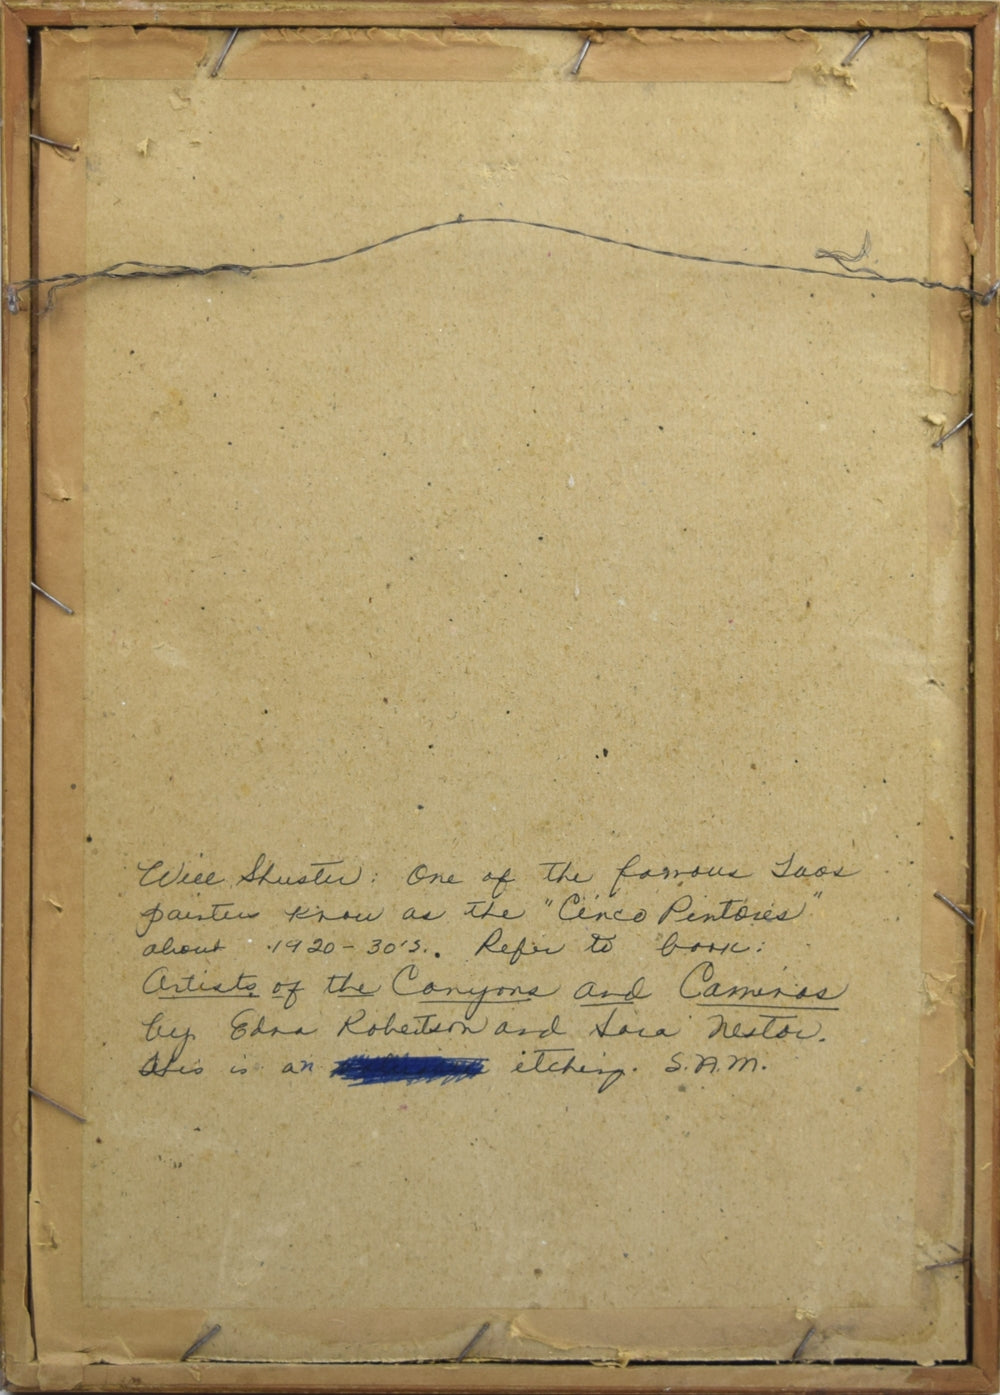 Will Shuster: One of the famous Taos
painters know as the "Cinco Pintores"
about 1920-30's. Refer to book:
Artists of the Canyons and Caminos
by Edna Robertson and Sara Nestor.
This is an itching. S.A.M.